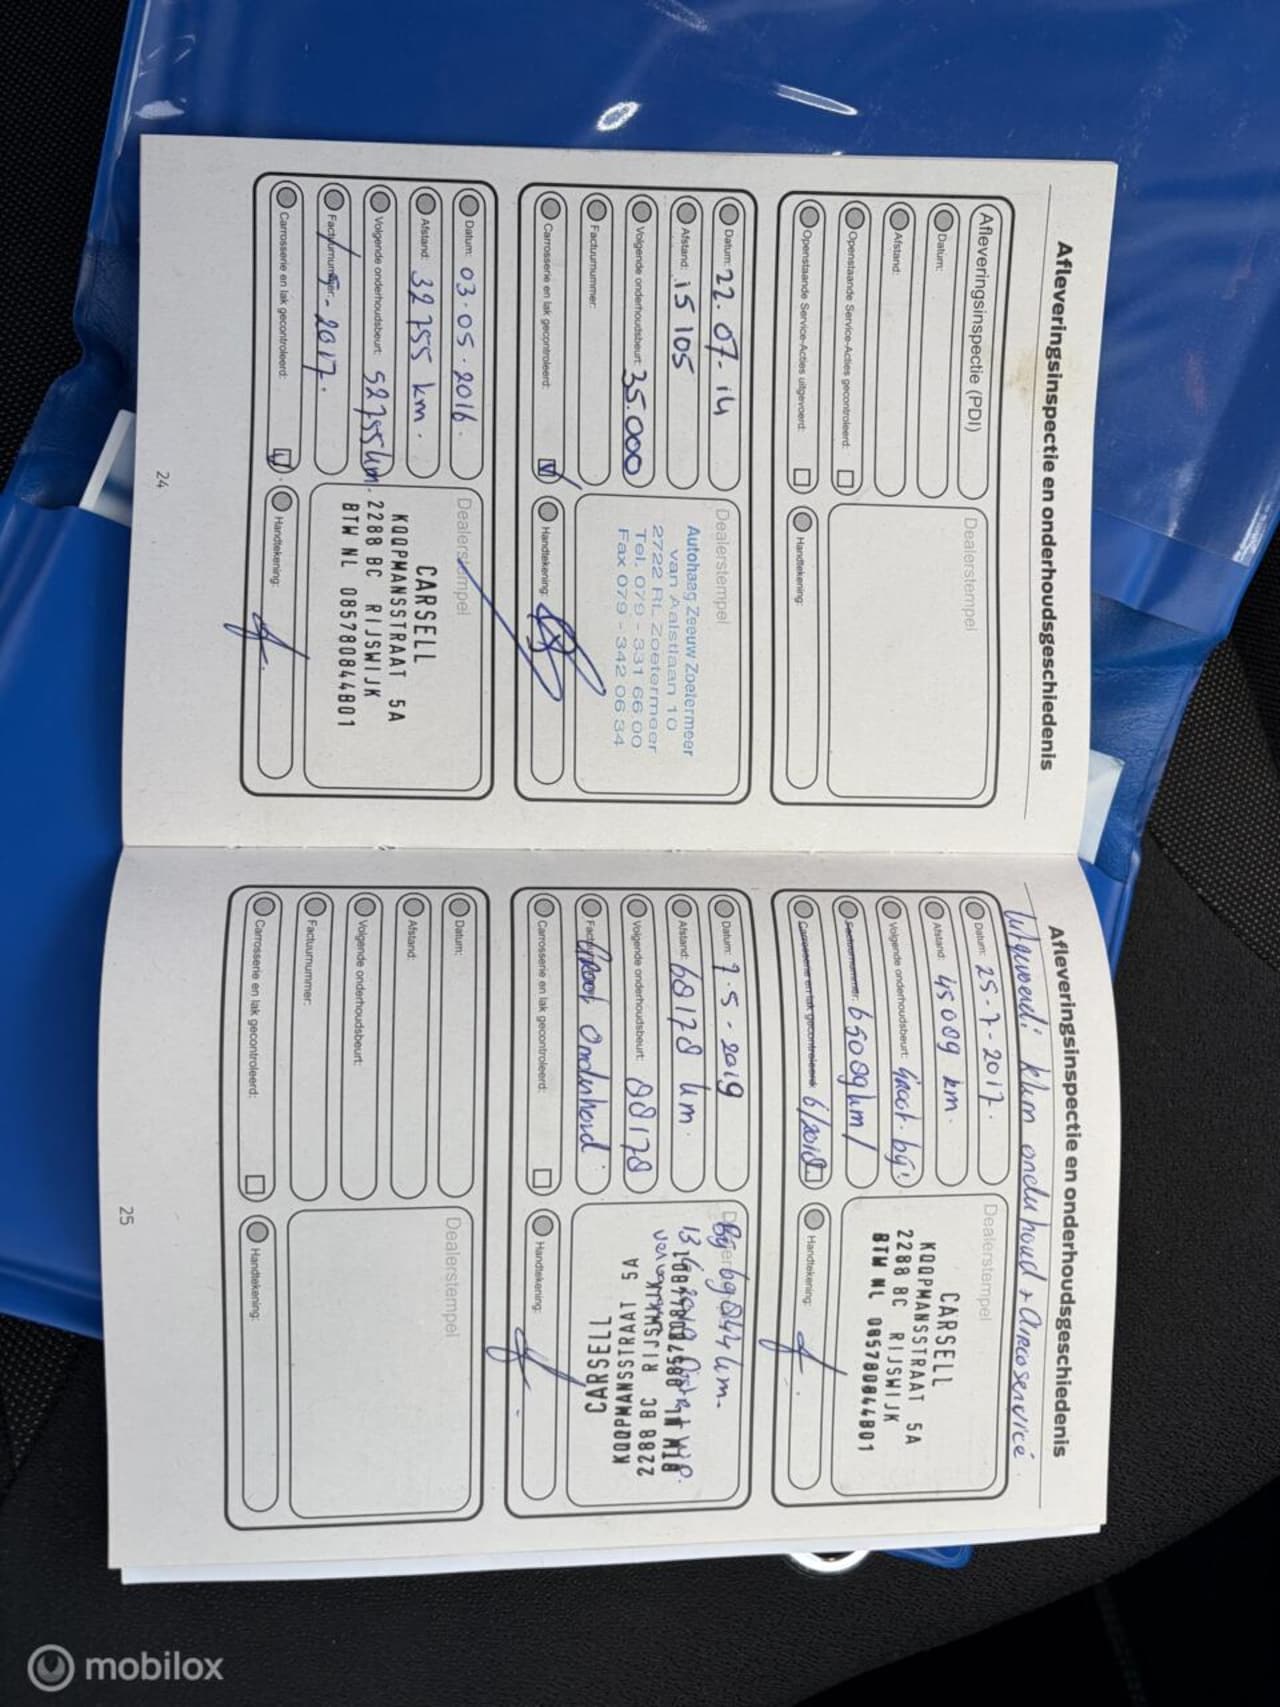 Afleveringsinspectie en onderhoudsgeschiedenis
Afleveringsinspectie (PDI)
Datum:
Afstand:
Openstaande Service-Acties gecontroleerd:
Openstaande Service-Acties uitgevoerd:
Dealerstempel
Handtekening:
Datum: 22.07-14
Afstand: 15 105
Volgende onderhoudsbeurt: 35.000
Factuurnummer:
Carrosserie en lak gecontroleerd:
Dealerstempel
Autohaag Zeeuw Zoetermeer
van Aalstlaan 10
2722 RL Zoetermeer
Tel. 079 - 331 66 00
Fax 079 - 342 06 34
Handtekening:
Datum: 03.05.2016.
Afstand: 32 755 km.
Volgende onderhoudsbeurt: 52755 km.
Factuurnummer: / 5-2017.
Carrosserie en lak gecontroleerd:
Dealerstempel
CARSELL
KOOPMANSSTRAAT 5A
2288 BC RIJSWIJK
BTW NL 085780844B01
Handtekening:
24
Afleveringsinspectie en onderhoudsgeschiedenis
Uitgevoerd: klein onderhoud + Aircoservice
Datum: 25-7-2017.
Afstand: 45009 km.
Volgende onderhoudsbeurt: Groot. bij!
Factuurnummer: 65009km/
Carrosserie en lak gecontroleerd: 6/2018
Dealerstempel
CARSELL
KOOPMANSSTRAAT 5A
2288 BC RIJSWIJK
BTW NL 085780844B01
Handtekening:
Datum: 7-5-2019
Afstand: 68178 km.
Volgende onderhoudsbeurt: 88178
Factuurnummer: Groot Onderhoud
Carrosserie en lak gecontroleerd:
Bij 69844 km.
CARSELL
KOOPMANSSTRAAT 5A
2288 BC RIJSWIJK
BTW NL
Handtekening:
Datum:
Afstand:
Volgende onderhoudsbeurt:
Factuurnummer:
Carrosserie en lak gecontroleerd:
Dealerstempel
Handtekening:
25
mobilox